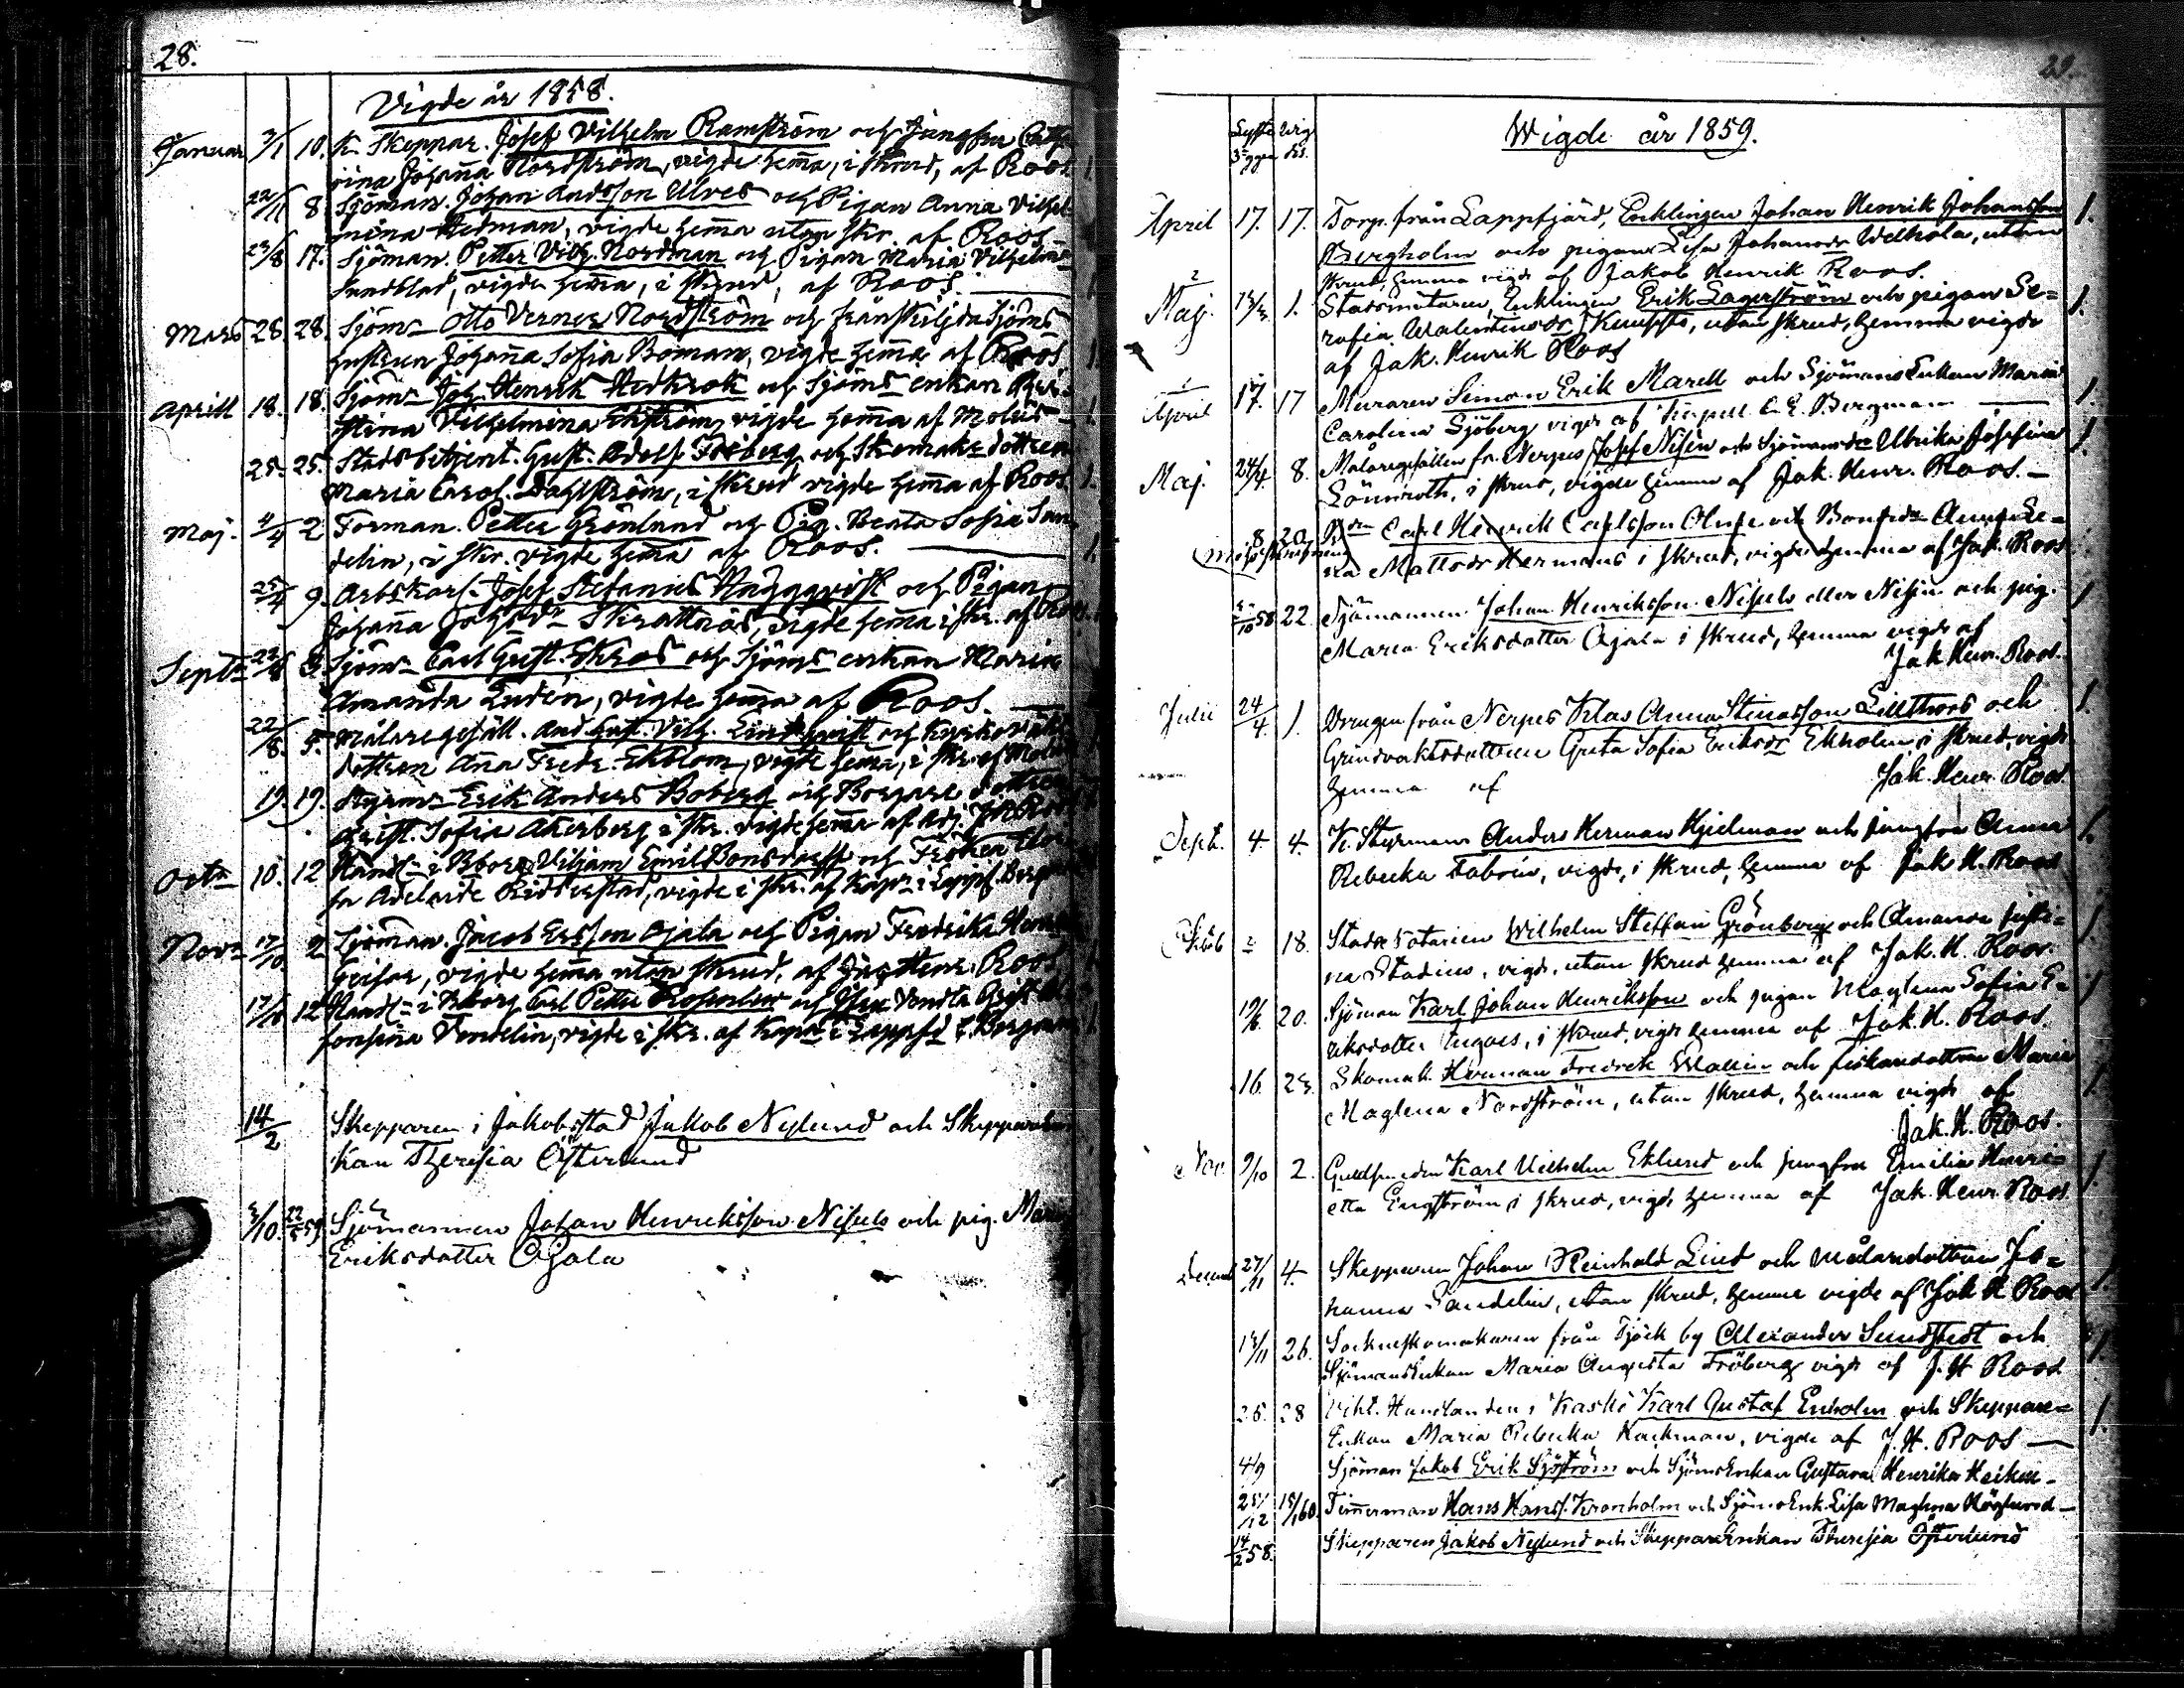 28.
Vigde år 1858.
Januar 3/1 10. K. Skeppar. Josef Vilhelm Ramström och Jungfru Cath
rina Johaña Nordström, vigde hem̃a, i skrud, af Roos
22/11 8 Sjöman. Johan Andsson Ulves och Pigan Anna Vilhel
mina Hedman, vigde hem̃a utan skr. af Roos
17. Sjöman. Petter Vilh. Nordman och Pigan Maria Vilhelm
Sandblad, vigde hem̃a, i skrud, af Roos.
Mars 28. 28. Sjöm. Otto Verner Nordström och frånskiljda Sjöms
hustrun Johaña Sofia Boman, vigde hem̃a af Roos
Aprill 18. 18. Sjöm. Joh. Henrik Hedkrok och Sjöms enkan Chri
stina Vilhelmina Ekström, vigde hem̃a af Moliis
25. 25. Stadsbetjent. Gust. Adolf Friberg och Skomake dottren
Maria Carol. Dahlström, i skrud vigde hem̃a af Roos.
Maj. 4/4 2 Forman. Petter Grönlund och Pig. Beata Sofia San
delin, i skr. vigde hem̃a af Roos.
25/4 9. Arbskarl. Josef Stefanus Häggqvist och Pigan
Johaña Johsdr Skrattnäs, vigde hem̃a i skr. af Roos
Septr 22/8 3 Sjöm. Carl Gust. Ekroos och Sjöms enkan Maria
Amanda Ludén, vigde hem̃a af Roos.
22/8. 5. Målaregesäll. And. Gust. Vilh. Lindqvist och Kyrkovakt
dottren Aña Fredr. Ekblom, vigde hem̃a, i skr. af Moliis
19. 19. Styrm. Erik Anders Boberg och Borgare dottren
Christ. Sofia Åkerberg i skr. vigde hem̃a af Adj. Jak Roos
Octr 10. 12 Handl. i Bborg Viljam Emil Bonsdorff och Fröken Elo
fa Adelaide Ridderstad, vigde i skr. af Kapn i Lappf. Bergm
Novr 17/10 2 Sjöman. Jacob Ersson Ojala och Pigan Fredrika Henr
Geisor, vigde hem̃a utan skrud, af Jac Henr. Roos
17/10 12 Handl. i Bborg Carl Petter Rosenlew och Jgfru Vendla Christ. Al
fonsina Vendelin, vigde i skr. af Kapn i Lappfd E. Bergman
14/2 Skepparen i Jakobstad Jakob Nylund och Skeppareen
kan Theresia Österlund
3/10. 22/5 59. Sjömannen Johan Henriksson Nisuls och pig. Maria
Eriksdotter Ojala
29.
Lysts Vigs
Wigde år 1859.
April 17. 17. Torp. från Lappfjärd, Enklingen Johan Henrik Johansson 1.
Bergholm och pigan Lisa Johansdr Welkola, utan
skrud, hemma vigde af Jakob Henrik Roos.
Maj. 1. Stadsmätaren, Enklingen Erik Lagerström och pigan Se= 1.
rafia Walentinsdr Knussts, utan skrud, hemma vigde
af Jak. Henrik Roos
April 17. 17 Muraren Simon Erik Marell och Sjömans Enkan Maria 1.
Carolina Sjöberg vigde af Kapell. C. E. Bergman
Maj. 24/4. 8. Målaregesällen fr. Nerpes Josef Nisén och Sjömansdr Ulrika Josefina 1.
Lönnroth, i skrud, vigde hemma af Jak. Henr. Roos.
8 20 Bdn Carl Henrik Carlsson Olus och Bondedr Anna Le=
na Mattsdr Hermans i skrud, vigde hemma af Jak. Roos
3/10 58 22 Sjömannen Johan Henriksson Nisuls eller Nisén och pig. 1
Maria Eriksdotter Ojala i skrud, hemma vigde af
Jak Henr. Roos.
Julii 24/4. 1. Drengen från Nerpes Klas Anna Stinasson Lillthors och 1.
Grindvaktsdottren Greta Sofia Eriksdr Ekholm, i skrud, vigde
hemma af Jak. Henr. Roos
Sept. 4 4. K. Styrman Anders Herman Hjelman och jungfru Anna 1.
Rebecka Fabrin, vigde, i skrud, hemma af Jak H. Roos
18. Stads Notarien Wilhelm Steffan Grönberg och Amanda Justi= 1
na Stadius, vigde, utan skrud hemma af Jak. H. Roos.
20. Sjöman Karl Johan Henriksson och pigan Maglena Sofia E= 1
riksdotter Ingves, i skrud, vigde hemma af Jak. H. Roos.
16. 23. Skomak. Herman Fredrik Wallin och fiskaredottren Maria
Maglena Nordström, utan skrud, hemma vigde af 1.
Jak. H. Roos.
Nov. 9/10 2. Guldsmeden Karl Wilhelm Eklund och jungfru Emilia Henri= 1
etta Engström, i skrud, vigde hemma af Jak. Henr. Roos
Decemb 27/11 4. Skepparen Johan Reinhold Lind och målaredottren Jo=
hanna Sandelin, utan skrud, hemma vigde af Jak H Roos 1.
13/11 26. Sockneskomakaren från Tjöck by Alexander Sundstedt och 1.
Sjömans Enkan Maria Augusta Fröberg vigde af J. H Roos
26. 28 Vikt. Handlanden i Kaskö Karl Gustaf Enholm och Skeppare= 1.
Enkan Maria Rebecka Hackman, vigde af J. H. Roos
4/9 Sjöman Jakob Erik Sjöström och Sjöms Enkan Gustava Henrika Heiken
25/12 15/1 60. Timmerman Hans Hanss. Kronholm och Sjöms Enk. Lisa Maglena Höglund
14/2 58. Skepparen Jakob Nylund och Skeppare Enkan Theresia Österlund